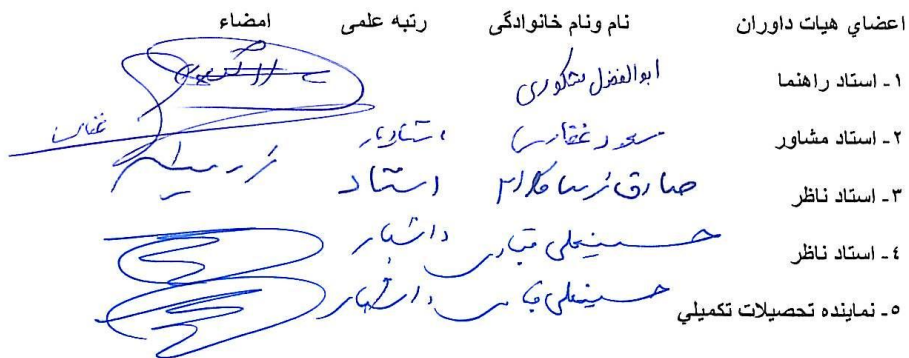 اعضاي هيات داوران نام ونام خانوادگی رتبه علمی امضاء
۱ـ استاد راهنما ابوالفضل شکوری
۲ـ استاد مشاور مسعود غفاری استادیار
۳ـ استاد ناظر صادق استاد
٤ـ استاد ناظر حسینعلی قبادی دانشیار
٥ـ نماینده تحصیلات تکمیلي حسینعلی قبادی دانشیار